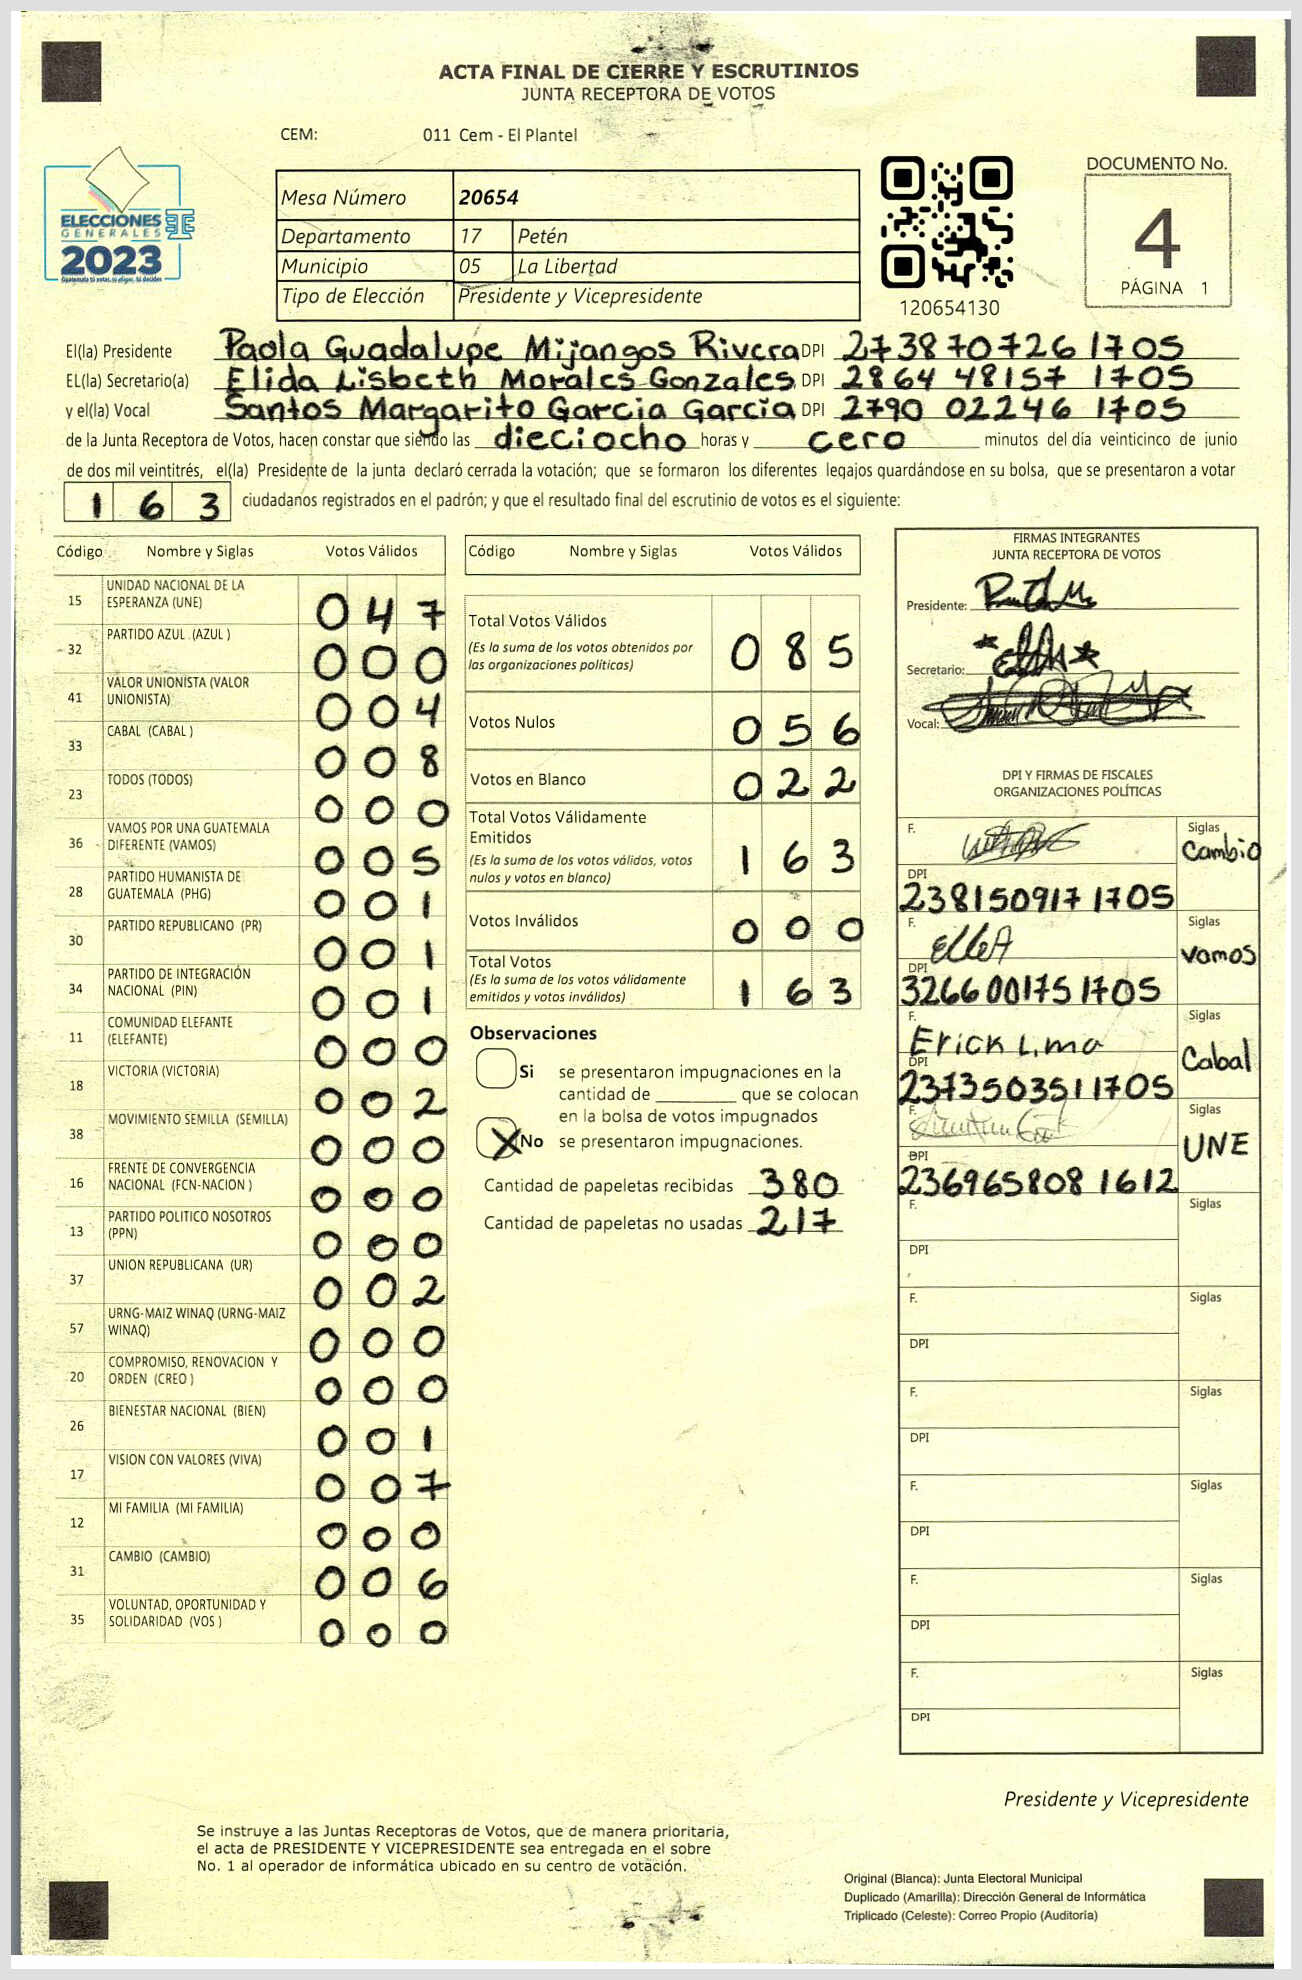 ACTA FINAL DE CIERRE Y ESCRUTINIOS
JUNTA RECEPTORA DE VOTOS
CEM: 011 Cem - El Plantel
ELECCIONES
GENERALES
2023
Guatemala tú votas, tú eliges, tú decides
Mesa Número 20654
Departamento 17 Petén
Municipio 05 La Libertad
Tipo de Elección Presidente y Vicepresidente
120654130
DOCUMENTO No.
4
PÁGINA 1
El(la) Presidente Paola Guadalupe Mijangos Rivera DPI 273870726 1705
EL(la) Secretario(a) Elida Lisbeth Morales Gonzales DPI 2864 48157 1705
y el(la) Vocal Santos Margarito Garcia Garcia DPI 2790 02246 1705
de la Junta Receptora de Votos, hacen constar que siendo las dieciocho horas y cero minutos del día veinticinco de junio
de dos mil veintitrés, el(la) Presidente de la junta declaró cerrada la votación; que se formaron los diferentes legajos quardándose en su bolsa, que se presentaron a votar
1 6 3 ciudadanos registrados en el padrón; y que el resultado final del escrutinio de votos es el siguiente:
Código Nombre y Siglas Votos Válidos
15 UNIDAD NACIONAL DE LA ESPERANZA (UNE) 0 4 7
32 PARTIDO AZUL (AZUL ) 0 0 0
41 VALOR UNIONISTA (VALOR UNIONISTA) 0 0 4
33 CABAL (CABAL ) 0 0 8
23 TODOS (TODOS) 0 0 0
36 VAMOS POR UNA GUATEMALA DIFERENTE (VAMOS) 0 0 5
28 PARTIDO HUMANISTA DE GUATEMALA (PHG) 0 0 1
30 PARTIDO REPUBLICANO (PR) 0 0 1
34 PARTIDO DE INTEGRACIÓN NACIONAL (PIN) 0 0 1
11 COMUNIDAD ELEFANTE (ELEFANTE) 0 0 0
18 VICTORIA (VICTORIA) 0 0 2
38 MOVIMIENTO SEMILLA (SEMILLA) 0 0 0
16 FRENTE DE CONVERGENCIA NACIONAL (FCN-NACION ) 0 0 0
13 PARTIDO POLITICO NOSOTROS (PPN) 0 0 0
37 UNION REPUBLICANA (UR) 0 0 2
57 URNG-MAIZ WINAQ (URNG-MAIZ WINAQ) 0 0 0
20 COMPROMISO, RENOVACION Y ORDEN (CREO ) 0 0 0
26 BIENESTAR NACIONAL (BIEN) 0 0 1
17 VISION CON VALORES (VIVA) 0 0 7
12 MI FAMILIA (MI FAMILIA) 0 0 0
31 CAMBIO (CAMBIO) 0 0 6
35 VOLUNTAD, OPORTUNIDAD Y SOLIDARIDAD (VOS ) 0 0 0
Código Nombre y Siglas Votos Válidos
Total Votos Válidos 0 8 5
(Es la suma de los votos obtenidos por
las organizaciones políticas)
Votos Nulos 0 5 6
Votos en Blanco 0 2 2
Total Votos Válidamente
Emitidos 1 6 3
(Es la suma de los votos válidos, votos
nulos y votos en blanco)
Votos Inválidos 0 0 0
Total Votos 1 6 3
(Es la suma de los votos válidamente
emitidos y votos inválidos)
Observaciones
Si se presentaron impugnaciones en la
cantidad de ________ que se colocan
en la bolsa de votos impugnados
X No se presentaron impugnaciones.
Cantidad de papeletas recibidas 380
Cantidad de papeletas no usadas 217
FIRMAS INTEGRANTES
JUNTA RECEPTORA DE VOTOS
Presidente:
Secretario:
Vocal:
DPI Y FIRMAS DE FISCALES
ORGANIZACIONES POLÍTICAS
F. Siglas Cambio
DPI 238150917 1705
F. Siglas Vamos
DPI 326600175 1705
F. Erick Lima Siglas Cabal
DPI 237350351 1705
F. Siglas UNE
DPI 236965808 1612
F. Siglas
DPI
F. Siglas
DPI
F. Siglas
DPI
F. Siglas
DPI
F. Siglas
DPI
F. Siglas
DPI
Presidente y Vicepresidente
Se instruye a las Juntas Receptoras de Votos, que de manera prioritaria,
el acta de PRESIDENTE Y VICEPRESIDENTE sea entregada en el sobre
No. 1 al operador de informática ubicado en su centro de votación.
Original (Blanca): Junta Electoral Municipal
Duplicado (Amarilla): Dirección General de Informática
Triplicado (Celeste): Correo Propio (Auditoría)